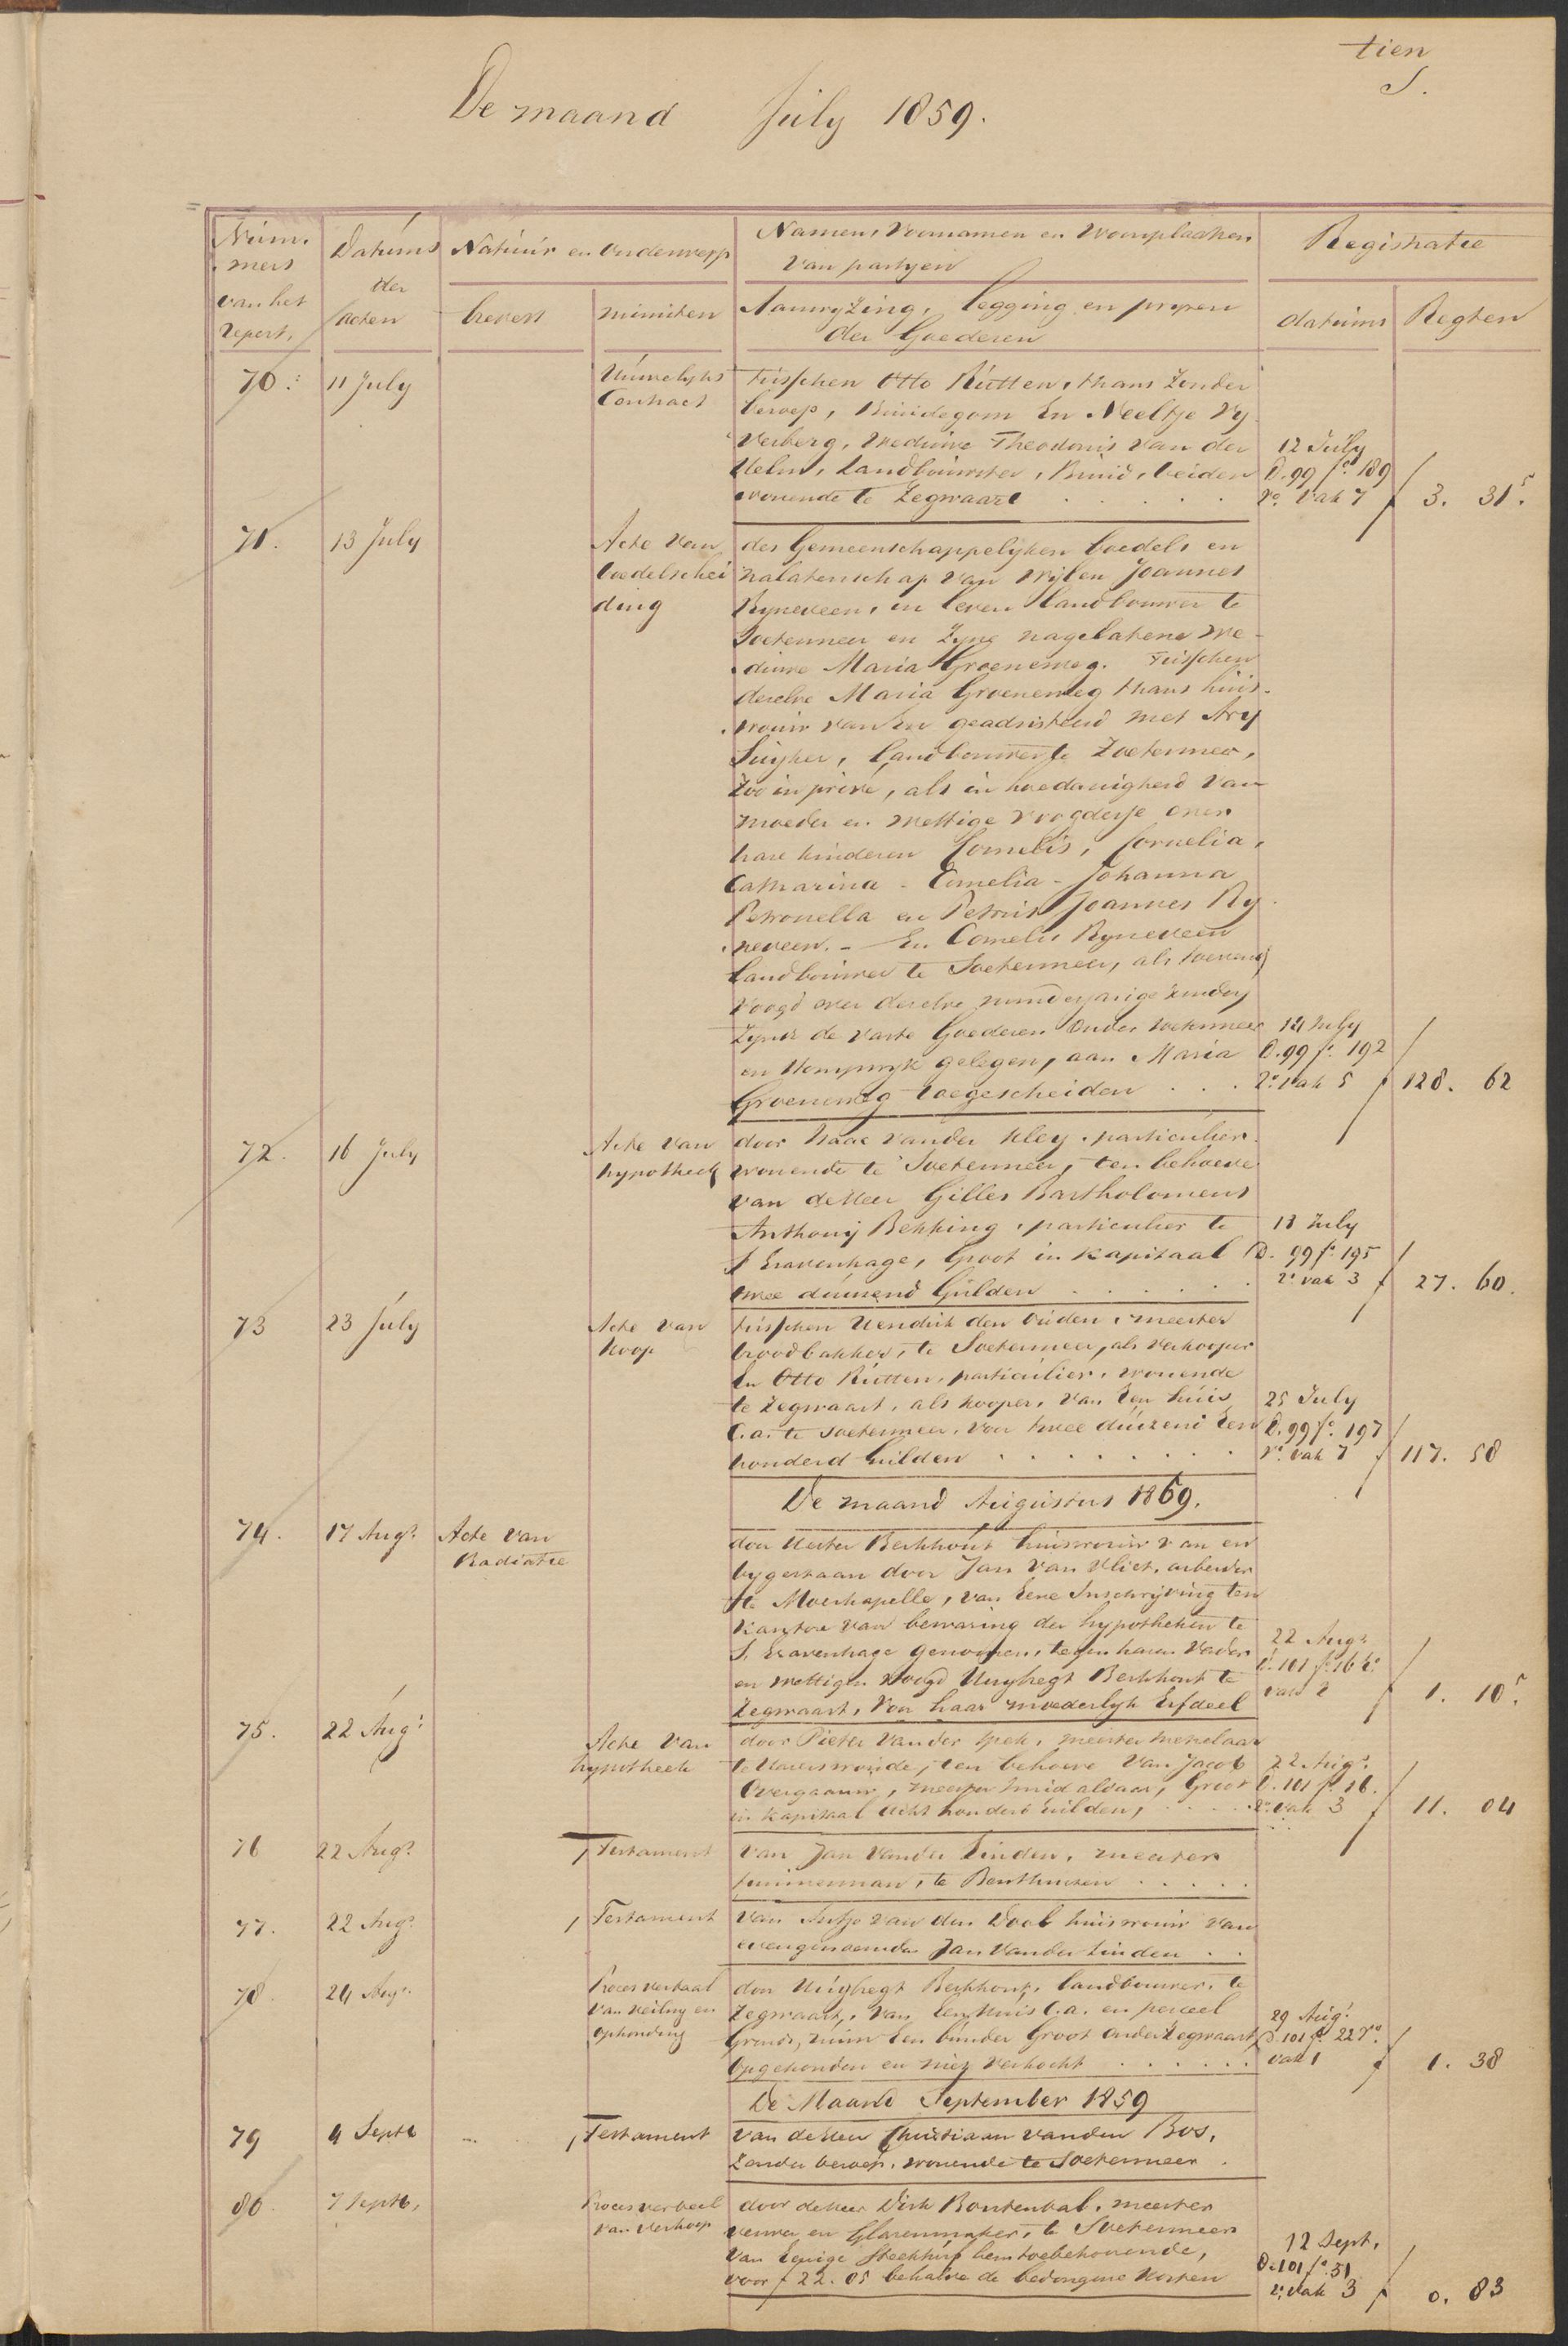 tien
S.
De maand July 1859.
Num.
mers
van het
Repert.
Datums
der
Acten
Natuur en Onderwerp
brevet
minuten
Namen, Voornamen en Woonplaatsen
van partyen
Aanwyzing, legging en pryzen
der Goederen
Registratie
datums
Regten
70.
11 July
Huwelyks
Contract
tusschen Otto Rutten, thans zonder
beroep, Bruidegom En Neeltje Vy
verberg, weduwe Theodorus van der
Helm, Landbouwster, Bruid, beiden
wonende te Zegwaart
12 July
D. 99 fo. 189
ro. vak 7
f 3. 31 5.
71.
13 July
Acte van
boedelschei
ding
des Gemeenschappelijken boedels en
nalatenschap van wijlen Joannes
Ryneveen, in leven landbouwer te
Soetermeer en Zyne nagelatene we-
duwe Maria Groeneweg. Tusschen
dezelve Maria Groeneweg thans huis-
vrouw van en geadsisteerd met Ary
Suyker, Landbouwer te Zoetermeer,
Zoo in privé, als in hoedanigheid van
moeder en wettige voogdesse over
hare kinderen Cornelis, Cornelia,
Catharina - Cornelia - Johanna
Petronella en Petrus Joannes Ry
neveen. - En Cornelis Ryneveen
Landbouwer te Soetermeer, als toeziend
voogd over dezelve minderjarige kinders
Zynde de vaste Goederen onder Soetermeer
en Stompwyk gelegen, aan Maria
Groeneweg toegescheiden
14 July
D. 99 fo. 192
ro. vak 5
f 128. 62
72.
16 July
Acte van
hypotheek
door Isaac vander Kley, particulier
wonende te Soetermeer, ten behoeve
van de Heer Gilles Bartholomeus
Anthony Bekking, particulier te
S Gravenhage, Groot in Kapitaal
twee duizend Gulden
18 July
D. 99 fo. 195
ro. vak 3
f 27. 60.
73
23 July
Acte van
Koop
tusschen Hendrik den Ouden, meester
broodbakker, te Soetermeer, als verkooper
En Otto Rutten, particulier, wonende
te Zegwaart, als kooper, van Een huis
C.a. te Soetermeer, voor twee duizend Een
honderd Gulden
25 July
D. 99 fo. 197
ro. vak 7
f 117. 58
De maand Augustus 1859.
74.
17 Augs.
Acte van
Radiatie
door Hester Berkhout huisvrouw van en
bygestaan door Jan van Vliet, arbeider
te Moerkapelle, van Eene Inschrijving ten
Kantore van bewaring der hypotheken te
S Gravenhage genomen, tegen haren Vader
en wettigen voogd Huybregt Berkhout te
Zegwaart, voor haar moederlyk Erfdeel
22 Augs.
D. 101 fo. 16
vak 2
f 1. 10 5.
75.
22 Augs.
Acte van
hypotheek
door Pieter vander Spek, meester metselaar
te Hazerswoude, ten behoeve van Jacob
Overgaauw, meester smid aldaar, Groot
in Kapitaal Acht honderd Gulden,
22 Augs.
D. 101 fo. 16.
ro. vak 3
f 11. 04
76
22 Augs.
Testament
van Jan vander Linden, meester
timmerman, te Benthuizen
77.
22 Augs.
Testament
van Antje van den Dool huisvrouw van
evengenoemde Jan vander Linden
78.
24 Augs.
Proces verbaal
van veiling en
ophouding
door Huybregt Berkhout, landbouwer, te
Zegwaart, van Een Huis C.a. en perceel
Grond, ruim Een bunder Groot onder Zegwaart,
opgehouden en niet verkocht
29 Augs.
D. 101 fo. 22 ro.
vak 1
f 1. 38
De Maand September 1859
79
4 Septb
Testament
van de Heer Christiaan vanden Bos,
Zonder beroep, wonende te Soetermeer
80.
7 Septb,
Proces verbaal
van verkoop
door de Heer Dirk Bontenbal, meester
verwer en Glazenmaker, te Soetermeer
van Eenige hem toebehoorende,
voor f 22.05 behalve de bedongene kosten
12 Sept.
D. 101 fo. 31
ro. vak 3
f 0. 83